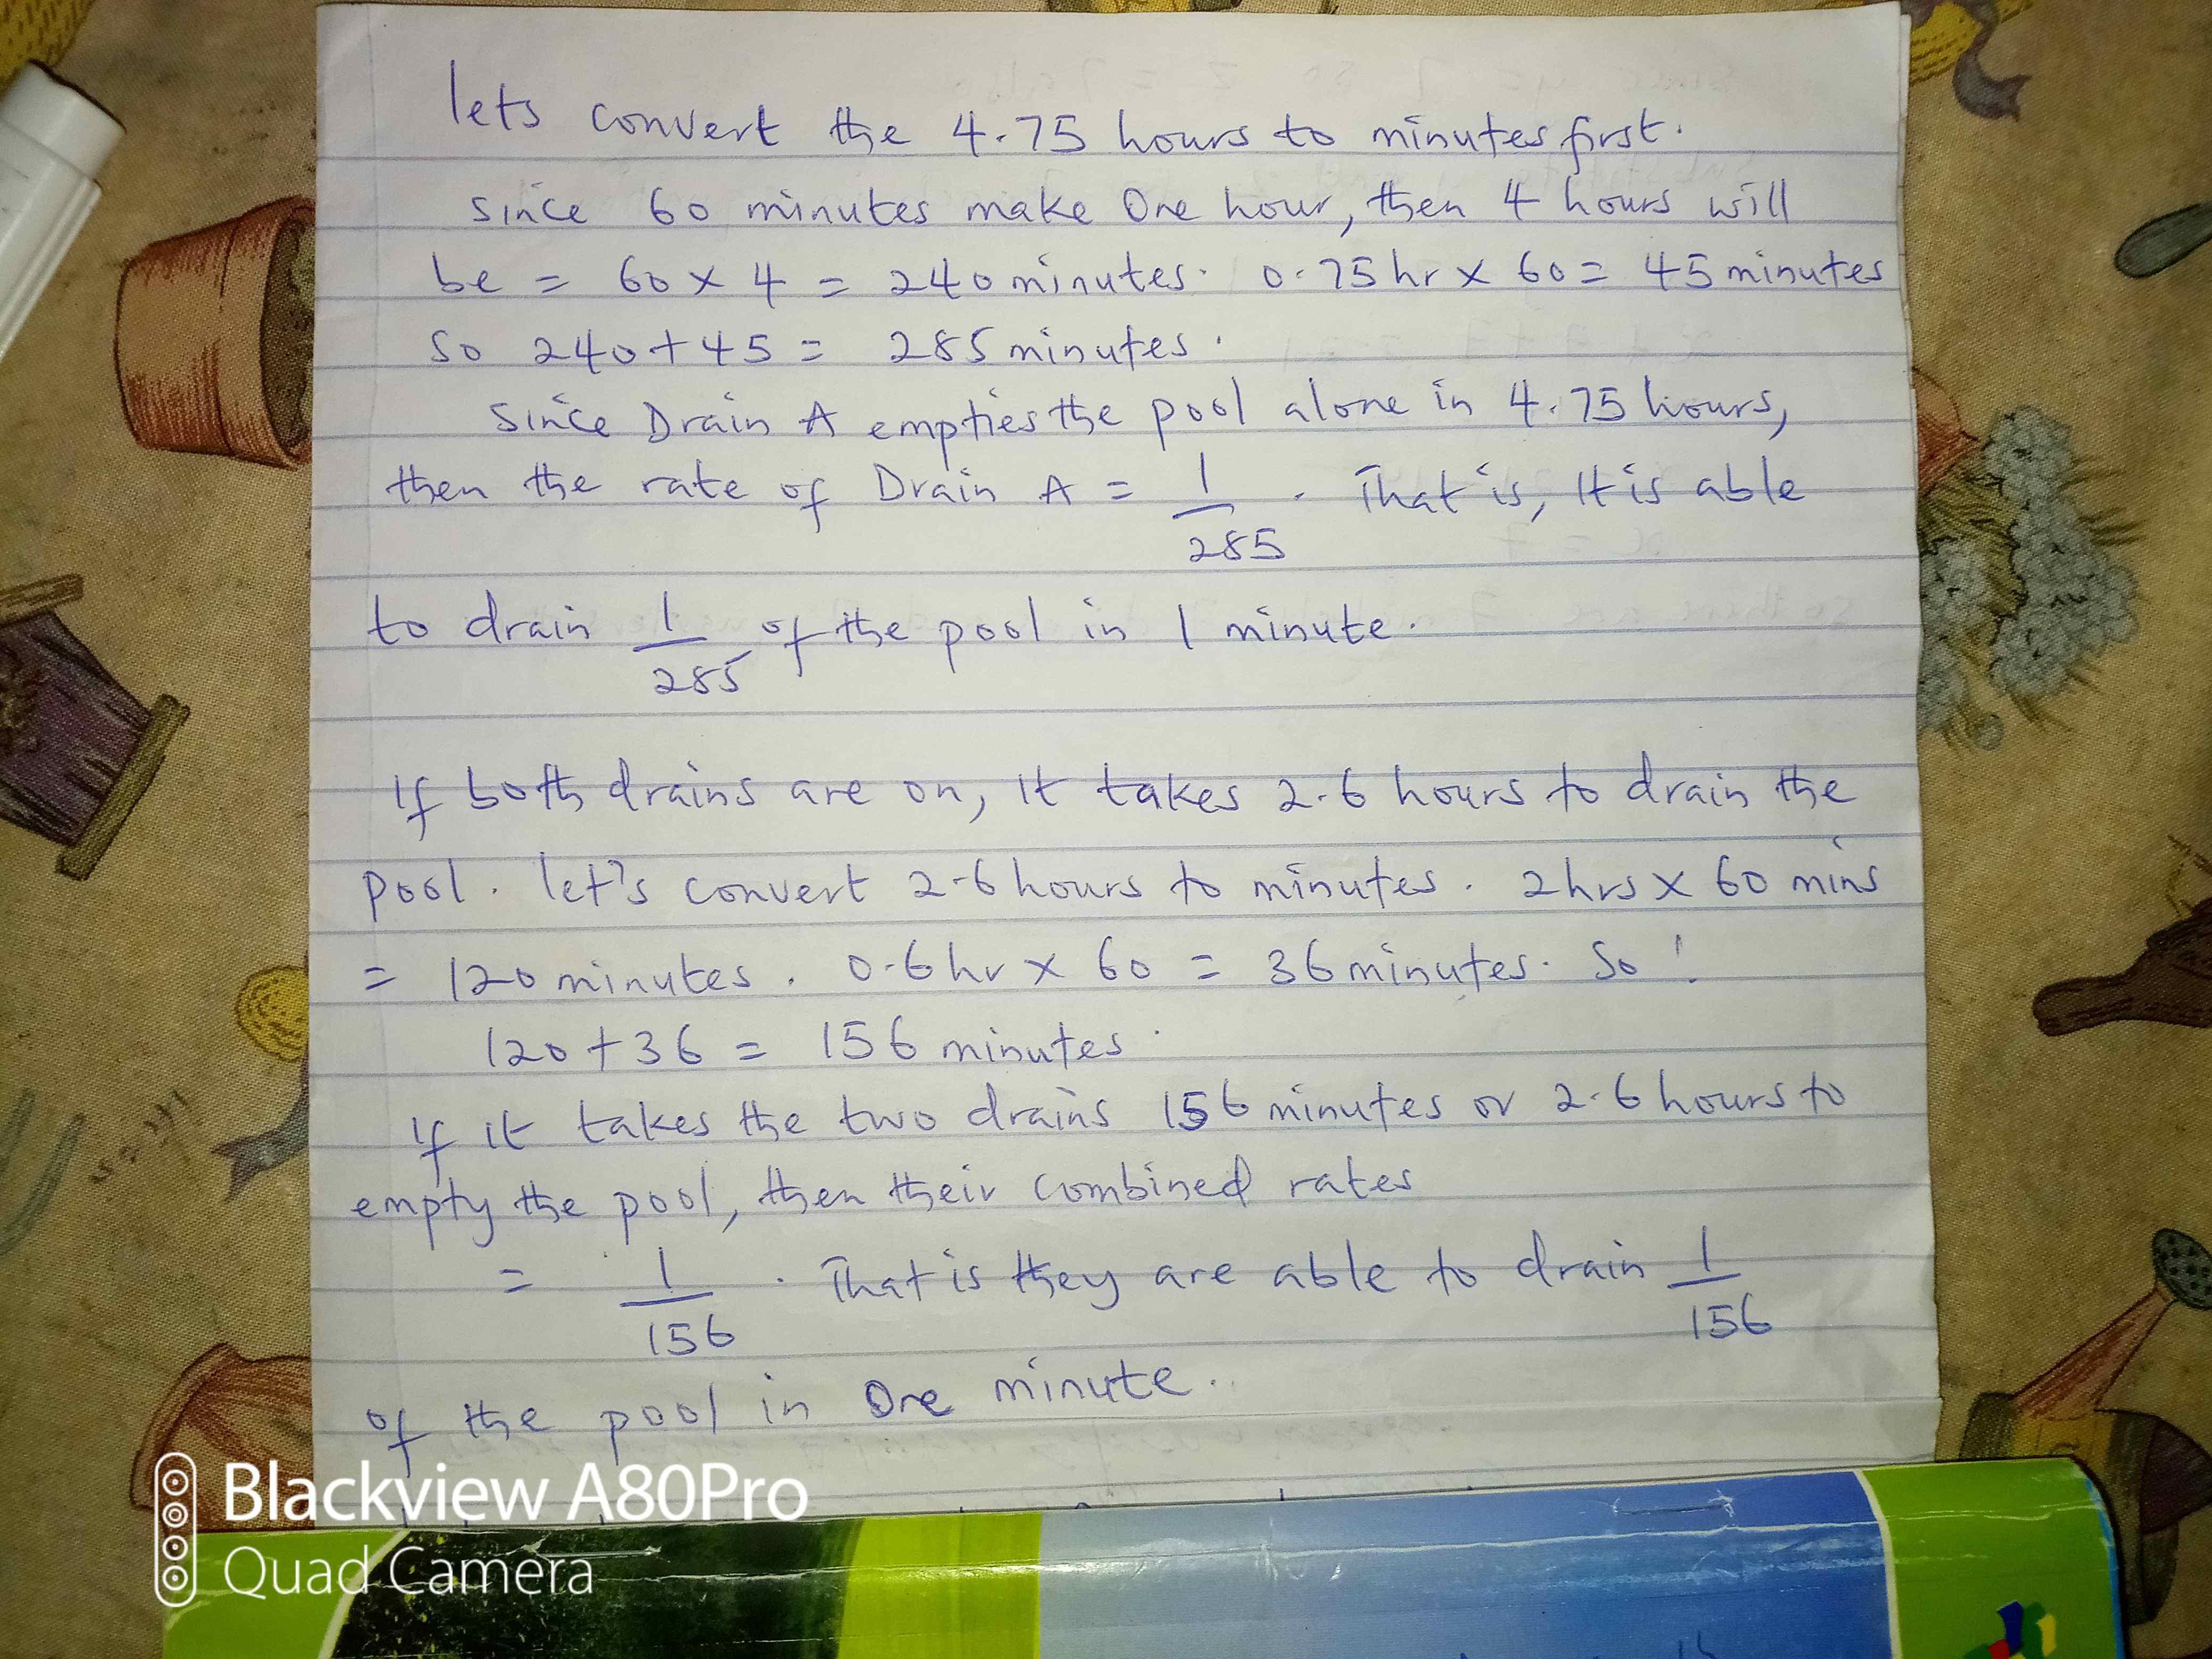 lets convert the 4.75 hours to minutes first.
since 60 minutes make One hour, then 4 hours will
be = 60 x 4 = 240 minutes. 0.75 hr x 60 = 45 minutes
So 240 + 45 = 285 minutes.
Since Drain A empties the pool alone in 4.75 hours,
then the rate of Drain A = 1/285. That is, It is able
to drain 1/285 of the pool in 1 minute.
If both drains are on, it takes 2.6 hours to drain the
pool. let's convert 2.6 hours to minutes. 2 hrs x 60 mins
= 120 minutes. 0.6 hr x 60 = 36 minutes. So:
120 + 36 = 156 minutes.
If it takes the two drains 156 minutes or 2.6 hours to
empty the pool, then their combined rates
= 1/156. That is they are able to drain 1/156
of the pool in One minute.
Blackview A80Pro
Quad Camera